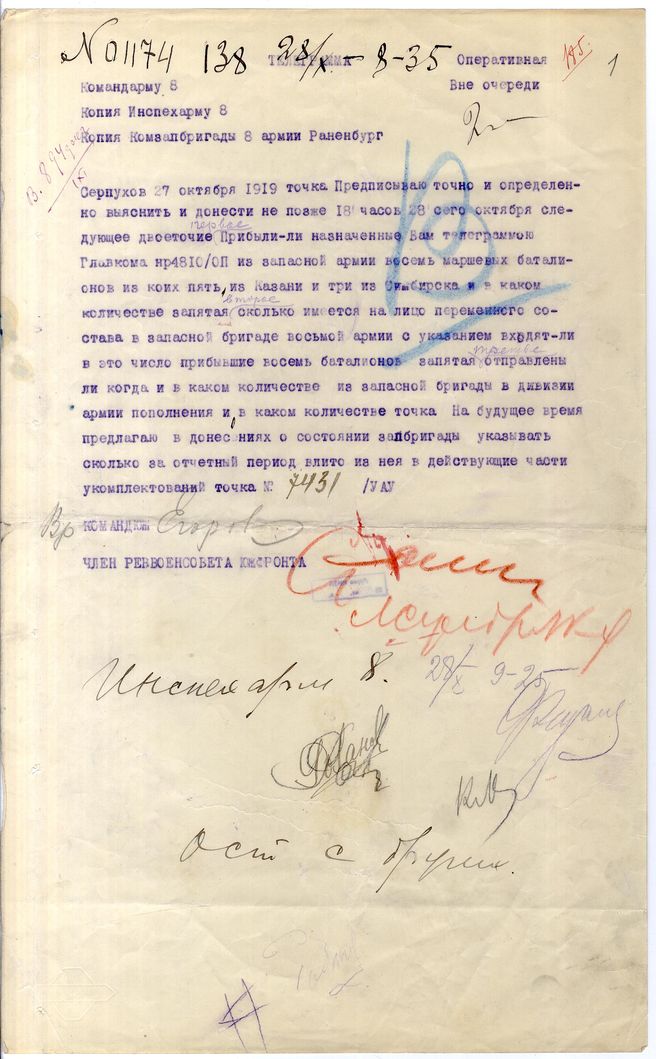 № 01174 138 28/X - 8-35
ТЕЛЕГРАММА Оперативная
185.
1
Командарму 8 Вне очереди
Копия Инспехарму 8
Копия Комзапбригады 8 армии Раненбург
Серпухов 27 октября 1919 точка Предписываю точно и определен-
но выяснить и донести не позже 18 часов 28 сего октября сле-
первое
дующее двоеточие Прибыли-ли назначенные Вам телеграммою
Главкома нр4810/ОП из запасной армии восемь маршевых батали-
онов из коих пять, из Казани и три из Симбирска и в каком
второе
количестве запятая сколько имеется на лицо переменного со-
става в запасной бригаде восьмой армии с указанием входят-ли
третье
в это число прибывшие восемь баталионов запятая отправлены
ли когда и в каком количестве из запасной бригады в дивизии
армии пополнения и, в каком количестве точка На будущее время
предлагаю в донесениях о состоянии запбригады указывать
сколько за отчетный период влито из нея в действующие части
укомплектований точка № 7431 /УАУ
Вр КОМАНДЮЖ Егоров
ЧЛЕН РЕВВОЕНСОВЕТА ЮЖФРОНТА
Инспехарм 8.
28/X 9-25